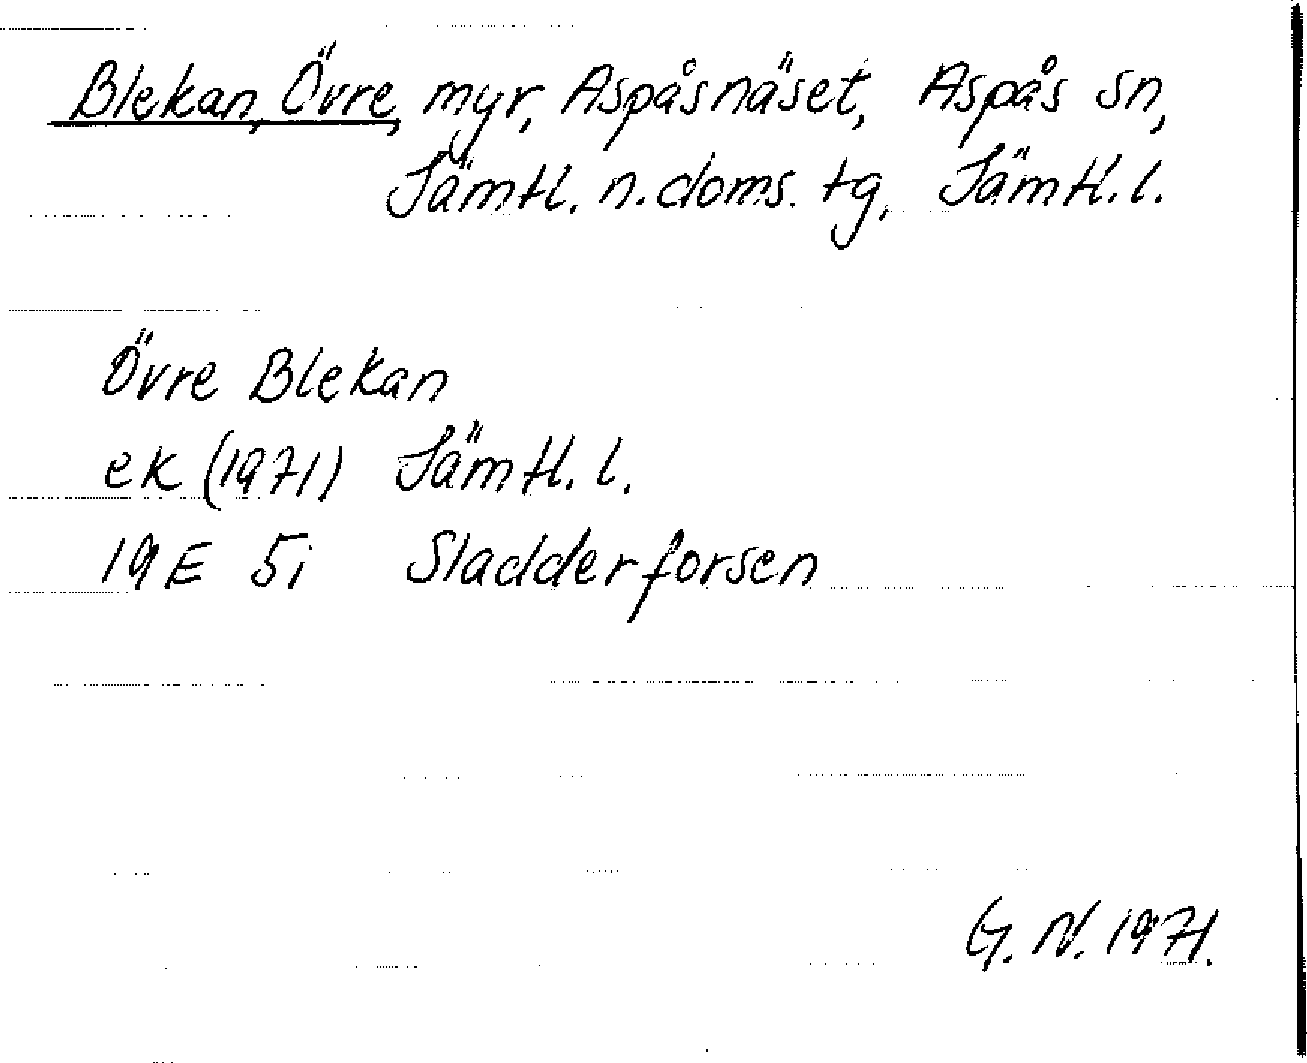 Blekan, Övre, myr, Aspåsnäset, Aspås sn,
Jämtl. n. doms. tg, Jämtl. l.
Övre Blekan
ek (1971) Jämtl. l.
19E 5i Sladderforsen
G. N. 1971.